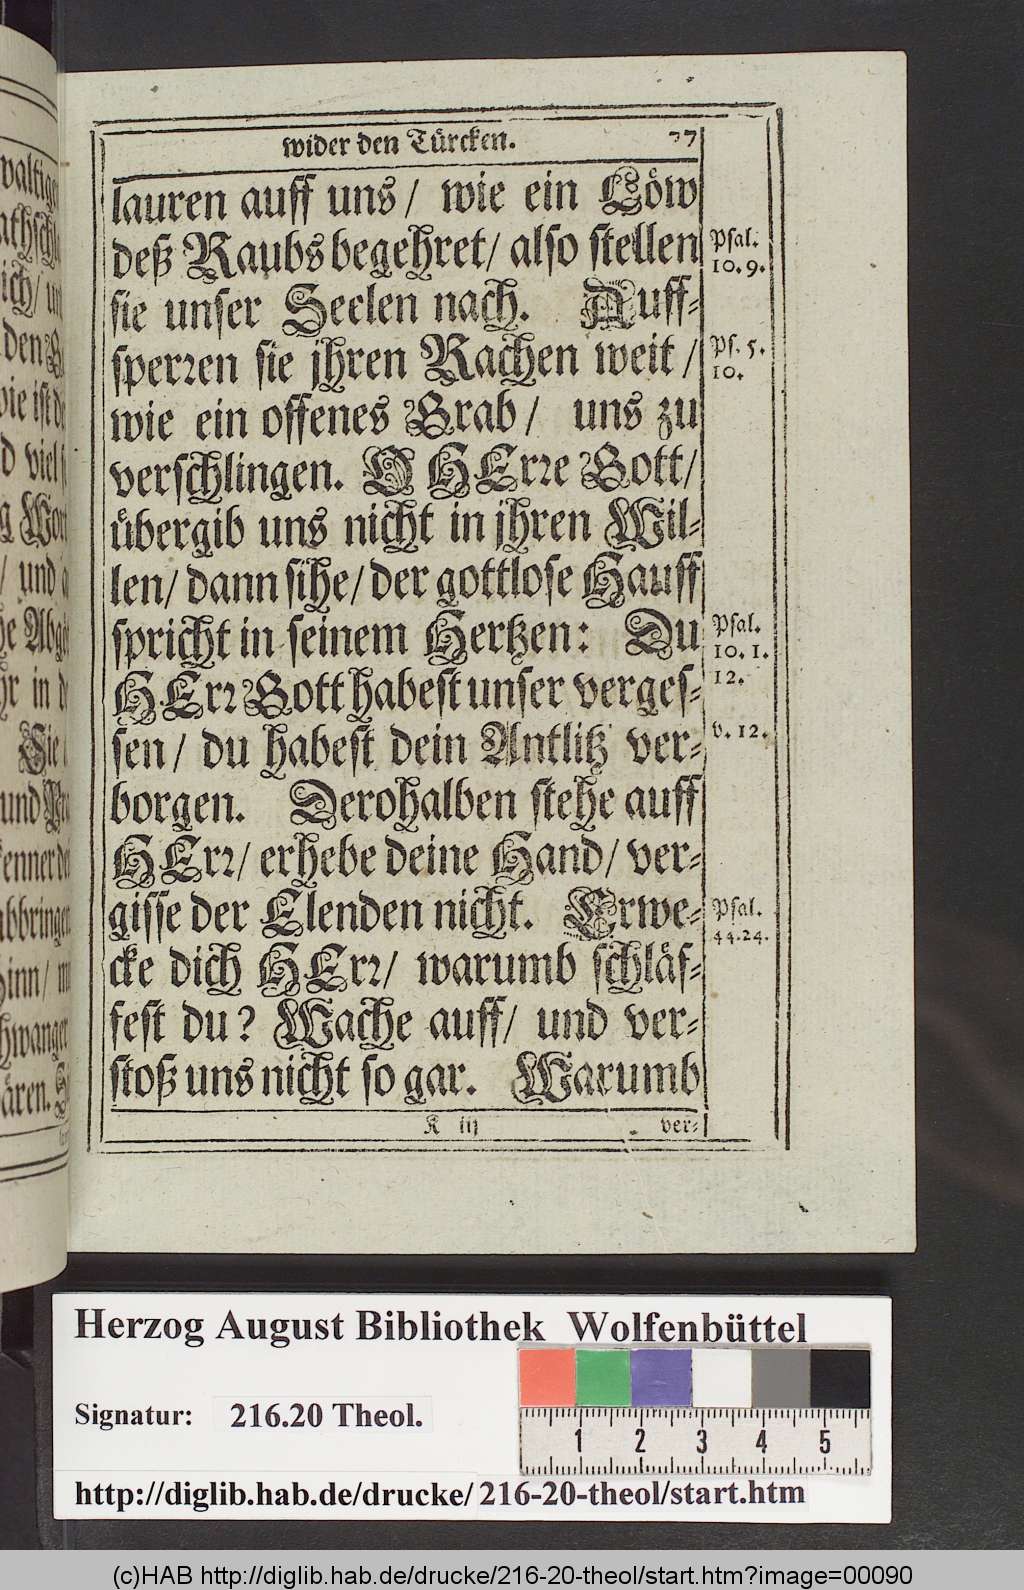 wider den Türcken. 77
lauren auff uns/ wie ein Löw
deß Raubs begehret/ also stellen
Psal.
10. 9.
sie unser Seelen nach. Auff-
sperren sie jhren Rachen weit/
Ps. 5.
10.
wie ein offenes Grab/ uns zu
verschlingen. O HErre Gott/
übergib uns nicht in jhren Wil-
len/ dann sihe/ der gottlose Hauff
spricht in seinem Hertzen: Du
Psal.
10. 1.
12.
HErr Gott habest unser verges-
sen/ du habest dein Antlitz ver-
v. 12.
borgen. Derohalben stehe auff
HErr/ erhebe deine Hand/ ver-
gisse der Elenden nicht. Erwe-
Psal.
44. 24.
cke dich HErr/ warumb schläf-
fest du? Wache auff/ und ver-
stoß uns nicht so gar. Warumb
K iij ver-
Herzog August Bibliothek Wolfenbüttel
Signatur: 216.20 Theol.
1 2 3 4 5
http://diglib.hab.de/drucke/216-20-theol/start.htm
(c)HAB http://diglib.hab.de/drucke/216-20-theol/start.htm?image=00090